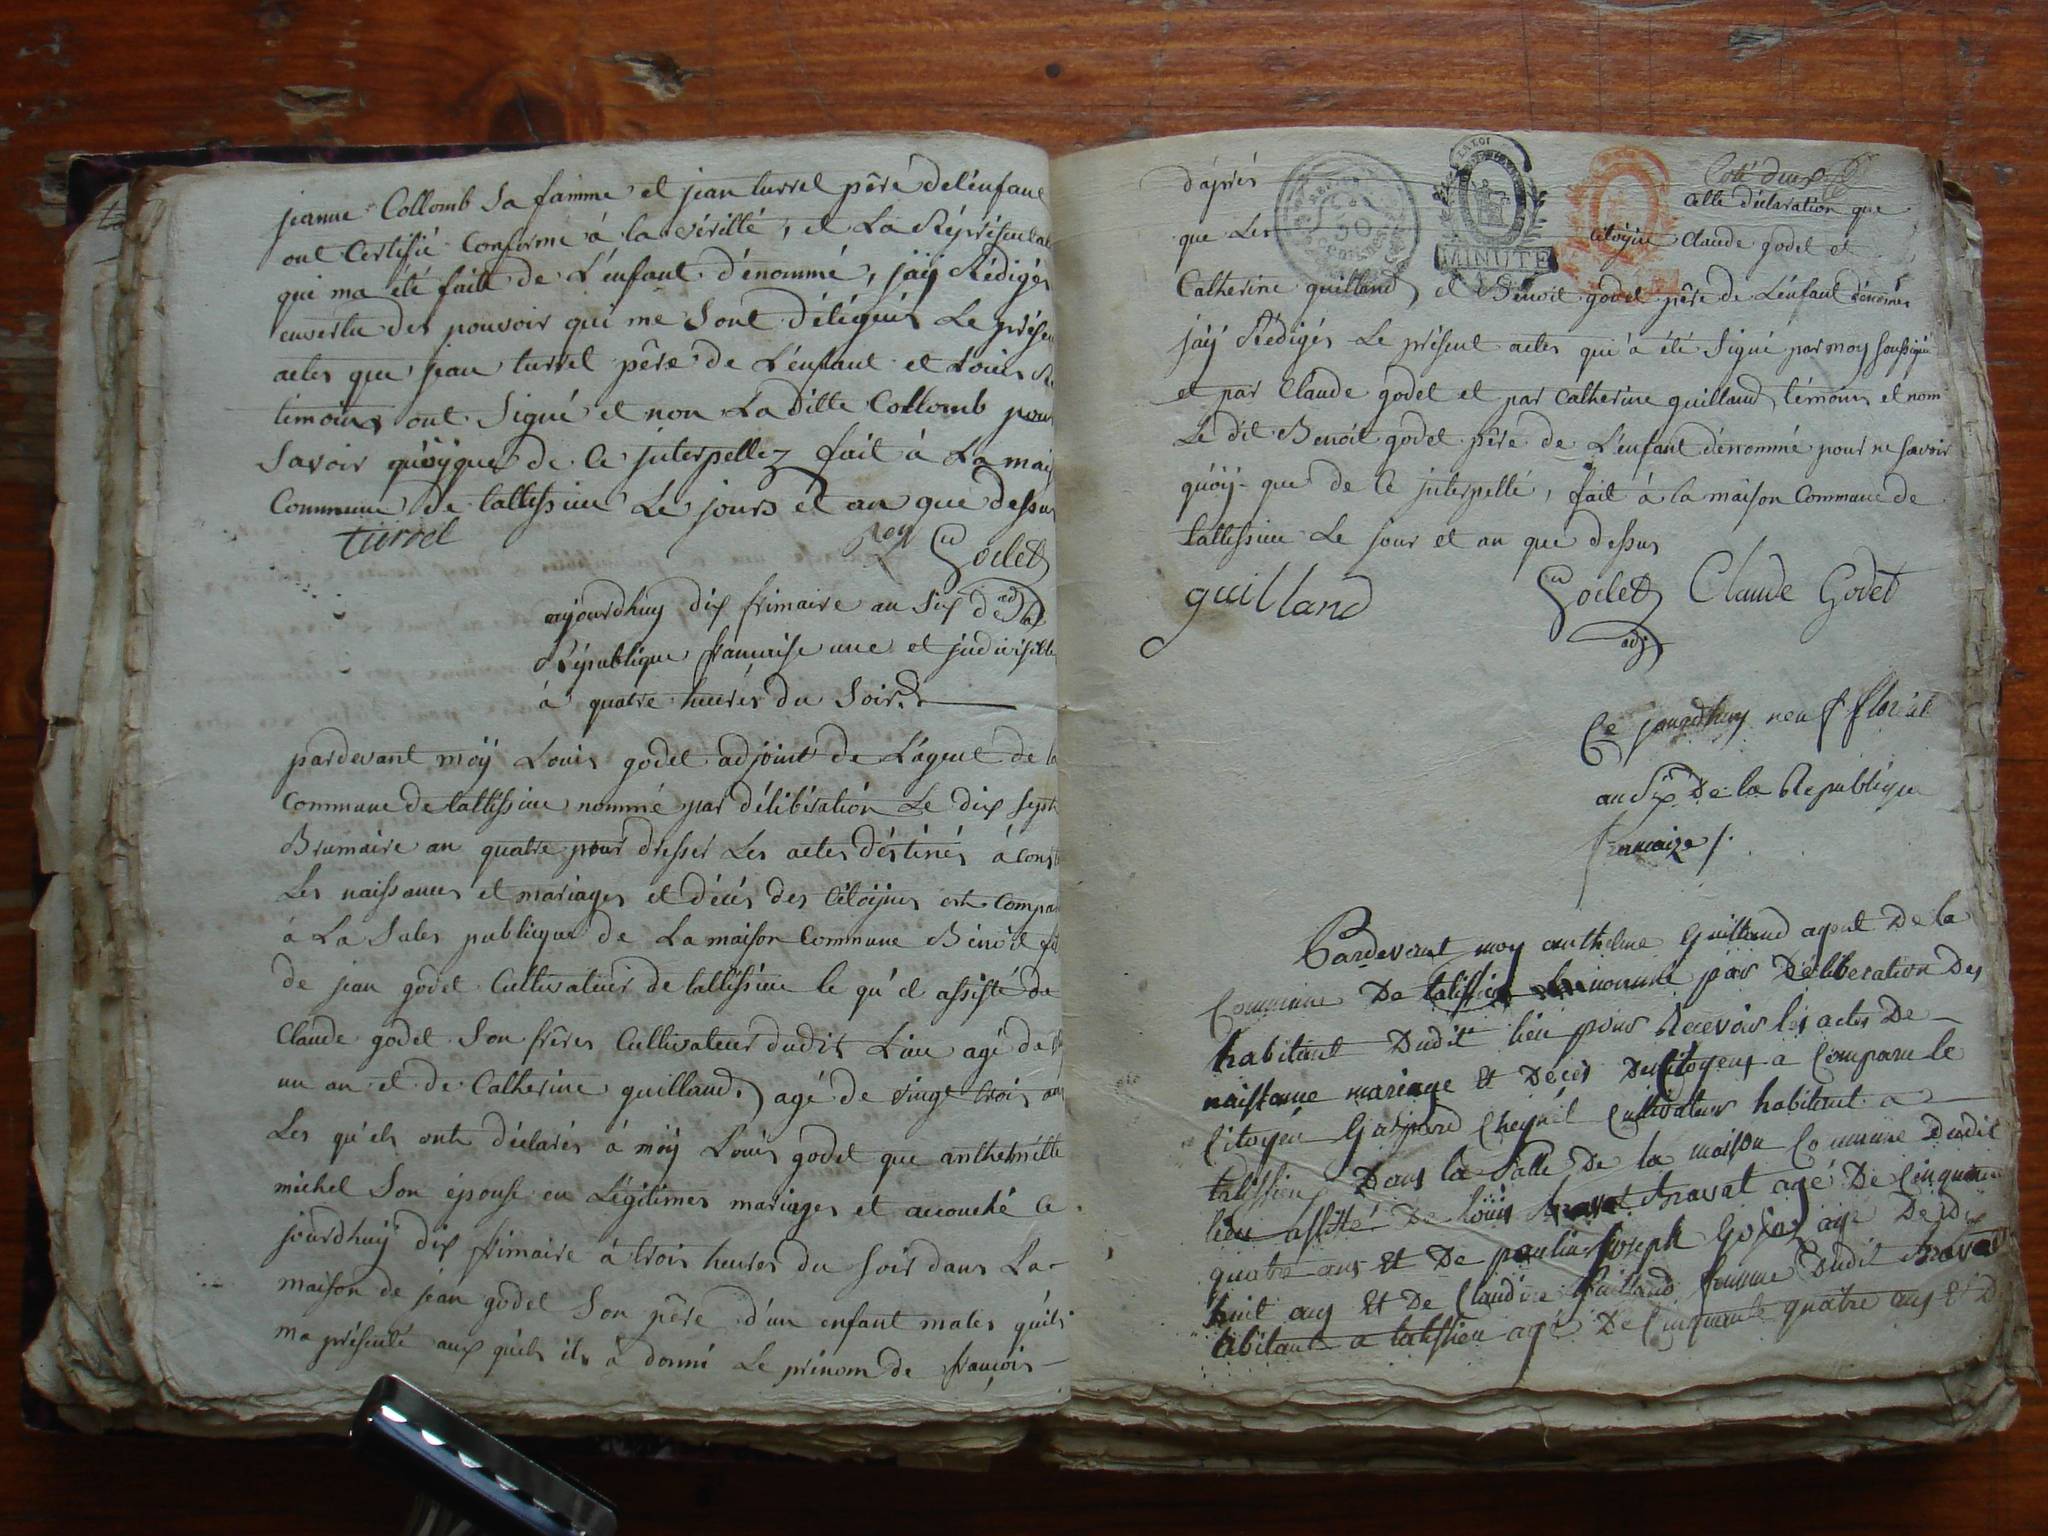 jeanne Collomb Sa famme et jean turrel pêre de lénfant
ont Certifié Conforme à la véritté, et La Réprésenta
qui ma été faite de L'enfant dénommé, jaÿ Rédigés
envertu des pouvoir qui me Sont délégués Le présen
actes que jean turrel pêre de Lénfant et Louis
témoins ont Signé et non La ditte Collomb pour
Savoir quoÿque de Ce jnterpellez fait à La mais
Commune de talissieu Le jours et an que dessus
turrel Rey Godet
adj
aujourdhuy dix frimaire an Six de la
République francaise une et jndivisible
à quatre heures du Soir.
pardevant moÿ Louis godet adjoint de Lágent de la
Commune de tallissieu nommé par délibération Le dix sept
Brumaire an quatre pour dresser Les actes déstinés à const
Les naissances et mariages et décés des Citoÿens est Compar
à La Sales publicque de La maison Commune Bénoit fils
de jean godet Cultivateur de tallissieu le qu'el assisté de
Claude godet Son frêres Cultivateur dudit Lieu agé de
un an et de Catherine guilland agé de vingt trois ans
Les qu'els onts déclarés à moÿ Louis godet que anthelmette
michel Son épouse en Légitimes mariages et accouché Ce
jourdhuÿ dix frimaire à trois heures du Soir dans La
maison de jean godet Son pêre d'un enfant males quils
ma présenté aux quels ils à donné Le prénom de françois
Coté deux
d'aprés cette déclaration que
que Les Citoyens Claude godet et
50
MINUTE
Catherine guilland et Bénoit godet pêre de Lénfant dénommé
jaÿ Rédigés Le présent actes qui à été Signé par moy soussigné
et par Claude godet et par Catherine guilland, témoins et nom
Le dit Benoit godet pêre de L'enfant dénommé pour ne Savoir
quóÿ-que de Ce jnterpellé, fait à la maison Commune de
tallissieu Le jour et an que dessus
guilland Godet Claude Godet
adj
Ce jourdhuy neuf floréal
an Six De la Republique
francaize /.
Pardevant moy anthelme Guilland agent De la
Commune De talissieu nommé par Deliberation Des
habitant Dudit lieu pour Recevoir les actes De
naissance mariage et Décés Des Citoyens a Comparu le
Citoyen Gaspard Cheynel Cultivateur habitant a
talissieu Dans la Salle De la maison Commune Dudit
lieu assisté De louis Travat agé De Cinquante
quatre ans et De paulin Joseph Godet agé De dix
huit ans Et De Claudine Guilland femme Dudit Travat
abitant a talissieu agé De Cinquante quatre ans Et D